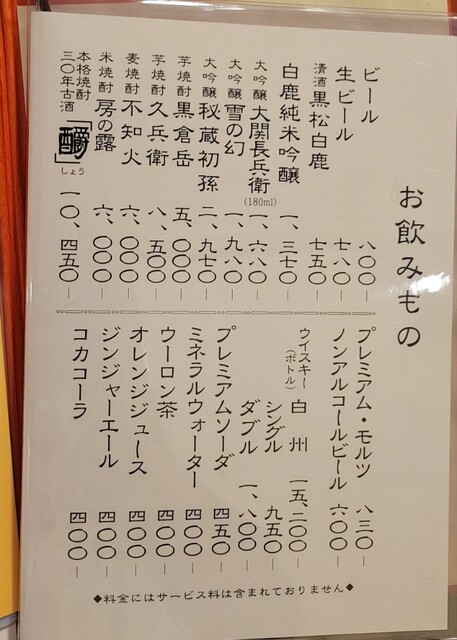 お飲みもの
ビール 八〇〇ー
生ビール 七八〇ー
清酒 黒松白鹿 七五〇ー
白鹿純米吟醸 一、三七〇ー
大吟醸 大関長兵衛 (180ml) 一、六八〇ー
大吟醸 雪の幻 一、九八〇ー
大吟醸 秘蔵初孫 二、九七〇ー
芋焼酎 黒倉岳 五、〇〇〇ー
芋焼酎 久兵衛 八、五〇〇ー
麦焼酎 不知火 六、〇〇〇ー
米焼酎 房の露 六、〇〇〇ー
本格焼酎
三〇年古酒 「醻」 しょう 一〇、四五〇ー
プレミアム・モルツ 八三〇ー
ノンアルコールビール 六〇〇ー
ウイスキー
(ボトル) 白州 一五、二〇〇ー
シングル 九五〇ー
ダブル 一、八〇〇ー
プレミアムソーダ 四五〇ー
ミネラルウォーター 四〇〇ー
ウーロン茶 四〇〇ー
オレンジジュース 四〇〇ー
ジンジャーエール 四〇〇ー
コカコーラ 四〇〇ー
◆料金にはサービス料は含まれておりません◆